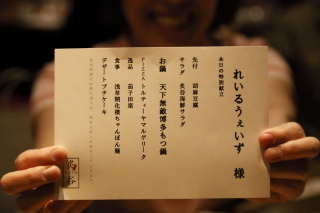 本日の特別献立
れいるうぇいず 様
先付 胡麻豆腐
サラダ 炙谷海鮮サラダ
お鍋 天下無敵博多もつ鍋
ピッツァ トルティーヤマルゲリータ
逸品 茄子田楽
食事 浅草開化楼ちゃんぽん麺
デザート プチケーキ